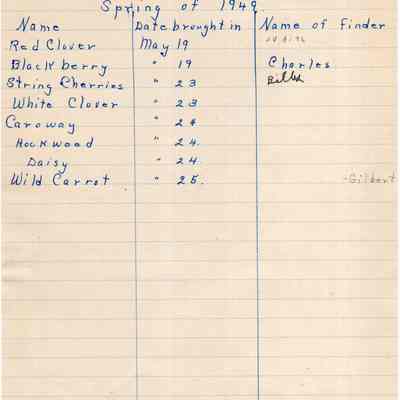 Spring of 1949
Name Date brought in Name of Finder
Red Clover May 19
Blackberry " 19 Charles
String Cherries " 23
White Clover " 23
Caroway " 24
Rockwood " 24.
Daisy " 24.
Wild Carrot " 25. -Gilbert